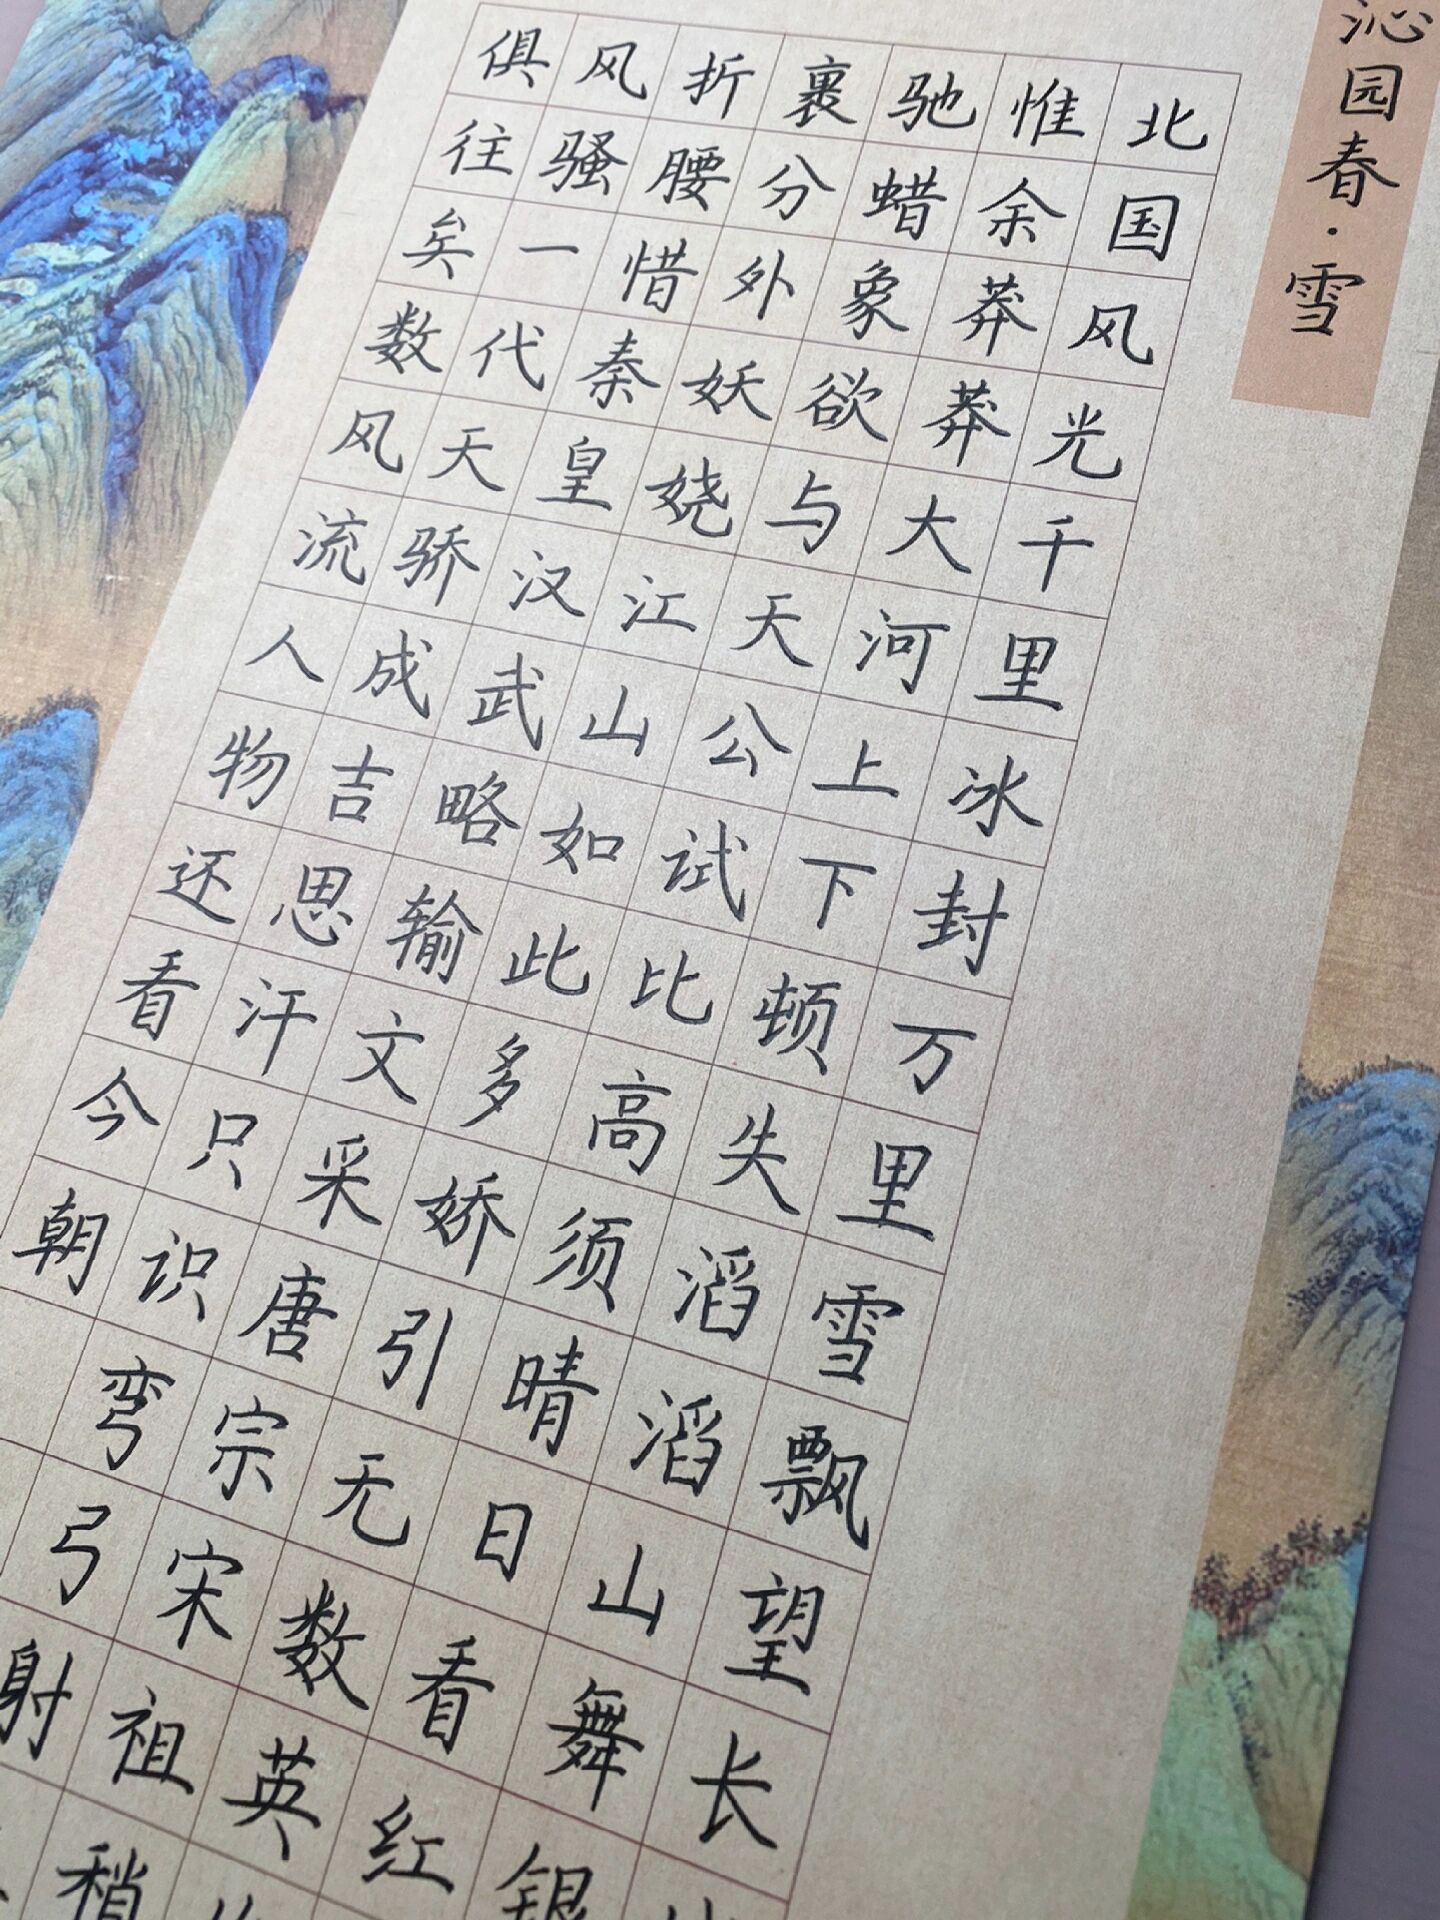 沁园春·雪
北国风光千里冰封万里雪飘望长
惟余莽莽大河上下顿失滔滔山舞银
驰蜡象欲与天公试比高须晴日看红
裹分外妖娆江山如此多娇引无数英
折腰惜秦皇汉武略输文采唐宗宋祖稍
风骚一代天骄成吉思汗只识弯弓射
俱往矣数风流人物还看今朝